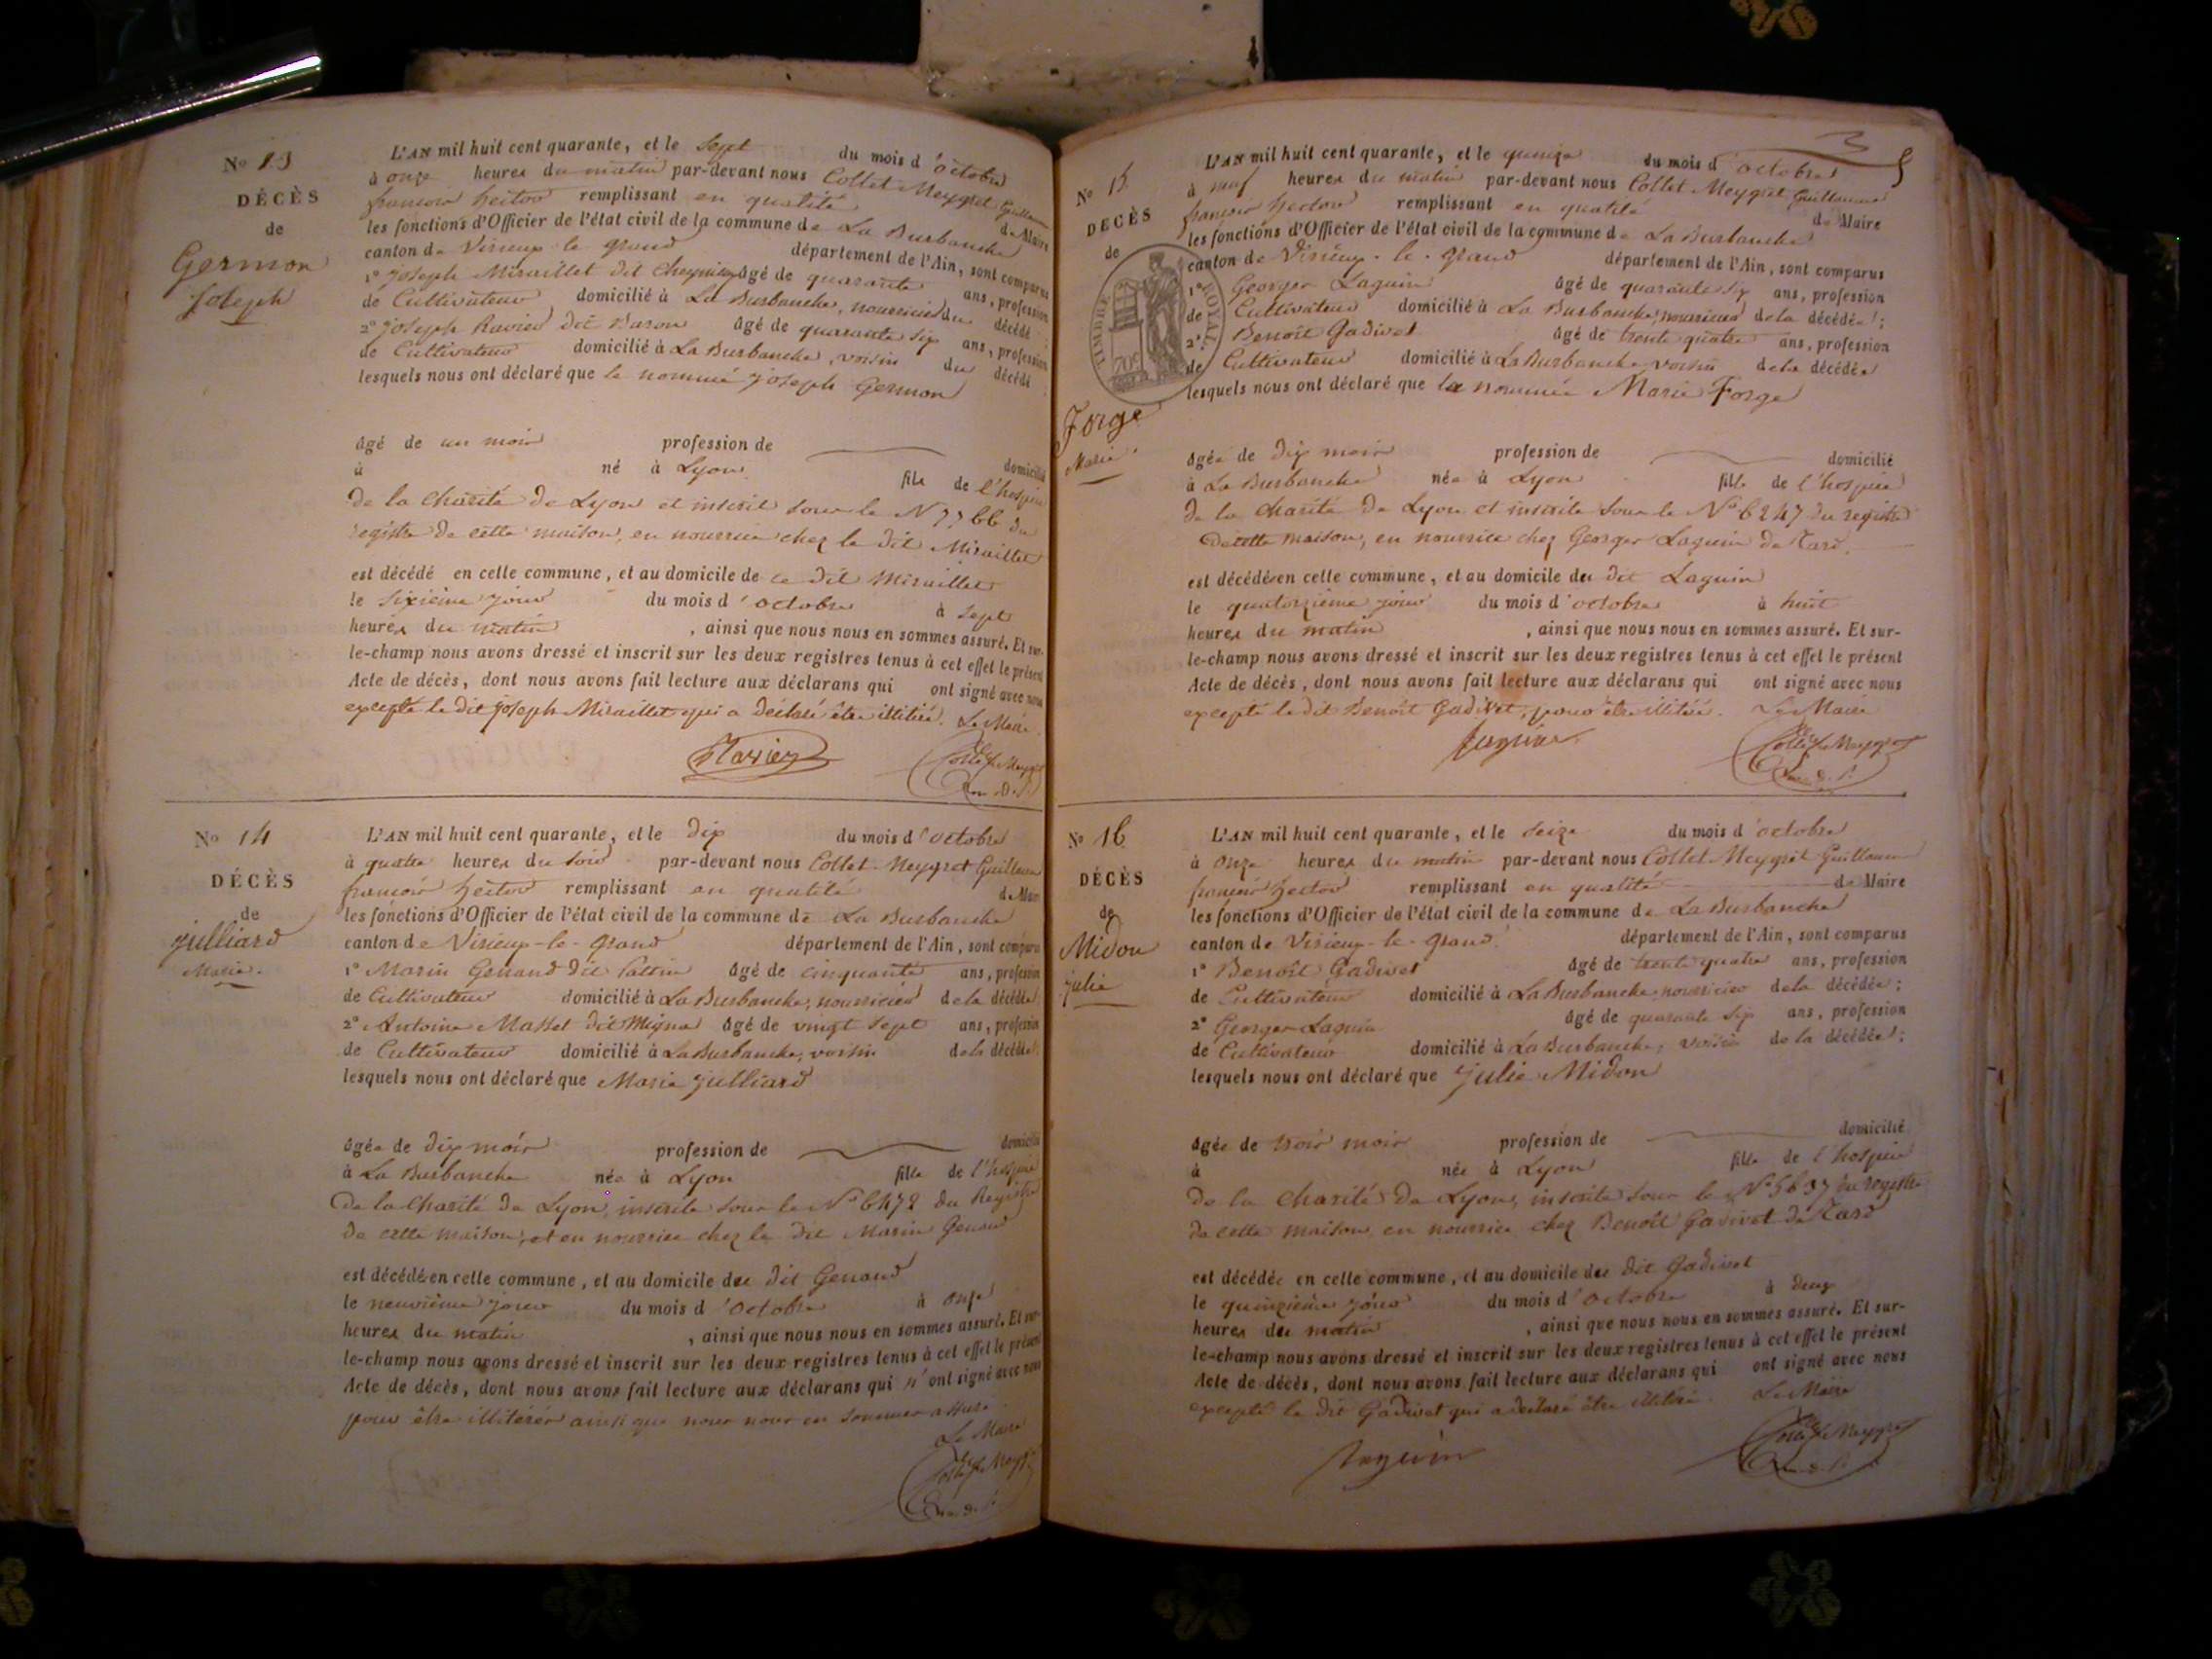 Nº 13
DÉCÈS
de
Germon
Joseph
L'AN mil huit cent quarante, et le Sept du mois d'octobre
à onze heures du matin par-devant nous Collet-Meygret Guillaume
françois hector remplissant en qualité de Maire
les fonctions d'Officier de l'état civil de la commune de La Burbanche
canton de Virieux-le-grand département de l'Ain, sont comparus
1º Joseph Miraillet dit âgé de quarante ans, profession
de Cultivateur domicilié à La Burbanche, nourricier du décédé;
2º Joseph Ravier dit Baron âgé de quarante six ans, profession
de Cultivateur domicilié à La Burbanche, voisin du décédé
lesquels nous ont déclaré que le nommé joseph Germon
âgé de un mois profession de domicilié
à né à Lyon fils de l'hospice
de la Charité de Lyon et inscrit sous le Nº 7766 du
registre de cette maison, en nourrice chez le dit Miraillet
est décédé en celle commune, et au domicile de ce dit Miraillet
le sixième jour du mois d'octobre à sept
heures du matin, ainsi que nous nous en sommes assuré. Et sur-
le-champ nous avons dressé et inscrit sur les deux registres tenus à cet effet le présent
Acte de décès, dont nous avons fait lecture aux déclarans qui ont signé avec nous
excepté le dit joseph Miraillet qui a déclaré être illitéré. Le Maire
Ravier
Collet Meygret
Nº 14
DÉCÈS
de
julliard
Marie.
L'AN mil huit cent quarante, et le dix du mois d'octobre
à quatre heures du soir par-devant nous Collet-Meygret Guillaume
françois hector remplissant en qualité de Maire
les fonctions d'Officier de l'état civil de la commune de La Burbanche
canton de Virieux-le-grand département de l'Ain, sont comparus
1º Marin Genaud dit âgé de cinquante ans, profession
de Cultivateur domicilié à La Burbanche, nourricier de la décédée;
2º Antoine Masset dit Mignar âgé de vingt sept ans, profession
de Cultivateur domicilié à La Burbanche, voisin de la décédée;
lesquels nous ont déclaré que Marie julliard
âgée de dix mois profession de domicilié
à La Burbanche née à Lyon fille de l'hospice
de la Charité de Lyon, inscrite sous le Nº 6472 du Registre
de cette maison, et en nourrice chez le dit Marin Genaud
est décédée en celle commune, et au domicile du dit Genaud
le neuvième jour du mois d'octobre à onze
heures du matin, ainsi que nous nous en sommes assuré. Et sur-
le-champ nous avons dressé et inscrit sur les deux registres tenus à cet effet le présent
Acte de décès, dont nous avons fait lecture aux déclarans qui n'ont signé avec nous
pour être illitérés ainsi que nous nous en sommes assuré.
Le Maire
Collet Meygret
Nº 15
DÉCÈS
de
TIMBRE ROYAL
70c
Forge
Marie.
L'AN mil huit cent quarante, et le quinze du mois d'octobre
à neuf heures du matin par-devant nous Collet-Meygret Guillaume
françois hector remplissant en qualité de Maire
les fonctions d'Officier de l'état civil de la commune de La Burbanche
canton de Virieux-le-grand département de l'Ain, sont comparus
1º Georges Laguin âgé de quarante six ans, profession
de Cultivateur domicilié à La Burbanche, nourricier de la décédée;
2º Benoît Gadivet âgé de trente quatre ans, profession
de Cultivateur domicilié à La Burbanche, voisin de la décédée
lesquels nous ont déclaré que la nommée Marie Forge
âgée de dix mois profession de domicilié
à La Burbanche née à Lyon fille de l'hospice
de la Charité de Lyon et inscrite sous le Nº 6247 du registre
de cette maison, en nourrice chez Georges Laguin de Tard.
est décédée en celle commune, et au domicile du dit Laguin
le quatorzième jour du mois d'octobre à huit
heures du matin, ainsi que nous nous en sommes assuré. Et sur-
le-champ nous avons dressé et inscrit sur les deux registres tenus à cet effet le présent
Acte de décès, dont nous avons fait lecture aux déclarans qui ont signé avec nous
excepté le dit Benoît Gadivet, pour être illitéré. Le Maire
Laguin
Collet Meygret
Nº 16
DÉCÈS
de
Midon
julie
L'AN mil huit cent quarante, et le seize du mois d'octobre
à onze heures du matin par-devant nous Collet-Meygret Guillaume
françois hector remplissant en qualité de Maire
les fonctions d'Officier de l'état civil de la commune de La Burbanche
canton de Virieux-le-grand département de l'Ain, sont comparus
1º Benoît Gadivet âgé de trente quatre ans, profession
de Cultivateur domicilié à La Burbanche, nourricier de la décédée;
2º Georges Laguin âgé de quarante six ans, profession
de Cultivateur domicilié à La Burbanche, voisin de la décédée;
lesquels nous ont déclaré que julie Midon
âgée de trois mois profession de domicilié
à née à Lyon fille de l'hospice
de la Charité de Lyon, inscrite sous le Nº 5637 du registre
de cette maison, en nourrice chez Benoît Gadivet de Tard
est décédée en celle commune, et au domicile du dit Gadivet
le quinzième jour du mois d'octobre à deux
heures du matin, ainsi que nous nous en sommes assuré. Et sur-
le-champ nous avons dressé et inscrit sur les deux registres tenus à cet effet le présent
Acte de décès, dont nous avons fait lecture aux déclarans qui ont signé avec nous
excepté le dit Gadivet qui a déclaré être illitéré. Le Maire
Laguin
Collet Meygret